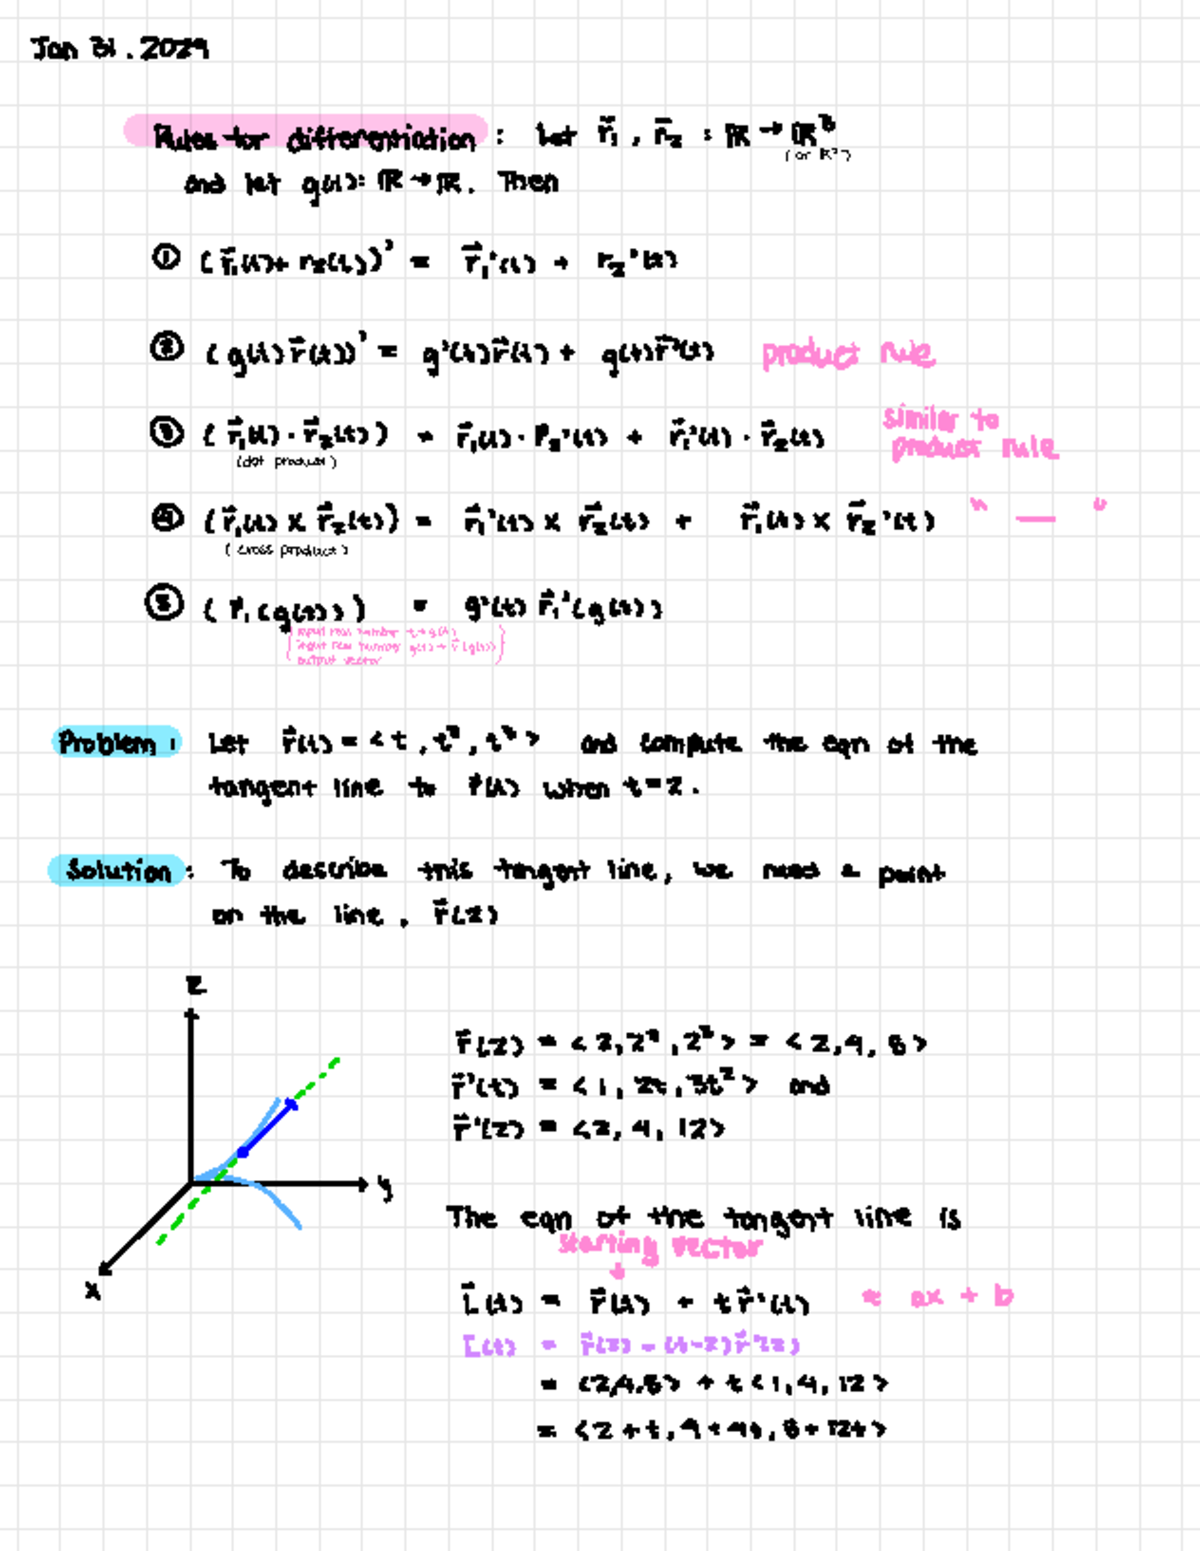 Jan 31. 2024
Rules for differentiation : Let r⃗₁, r⃗₂ : ℝ → ℝ³
(or ℝ²)
and let g(t): ℝ → ℝ. Then
① (r⃗₁(t) + r₂(t))' = r⃗₁'(t) + r₂'(t)
② (g(t) r⃗(t))' = g'(t) r⃗(t) + g(t) r⃗'(t) product rule
③ (r⃗₁(t) · r⃗₂(t)) = r⃗₁(t) · r⃗₂'(t) + r⃗₁'(t) · r⃗₂(t) similar to product rule
(dot product)
④ (r⃗₁(t) × r⃗₂(t)) = r⃗₁'(t) × r⃗₂(t) + r⃗₁(t) × r⃗₂'(t) " — "
(cross product)
⑤ (r⃗₁(g(t))) = g'(t) r⃗₁'(g(t))
input real number t → g(t)
input real number g(t) → r⃗(g(t))
output vector
Problem : Let r⃗(t) = <t, t², t³> and compute the eqn of the
tangent line to r⃗(t) when t=2.
Solution : To describe this tangent line, we need a point
on the line, r⃗(2)
z
y
x
r⃗(2) = <2, 2², 2³> = <2, 4, 8>
r⃗'(t) = <1, 2t, 3t²> and
r⃗'(2) = <2, 4, 12>
The eqn of the tangent line is
starting vector
↓
L⃗(t) = r⃗(t) + t r⃗'(t) ≈ ax + b
L⃗(t) = r⃗(2) - (t-2) r⃗'(2)
= <2,4,8> + t<1, 4, 12>
= <2+t, 4+4t, 8+12t>